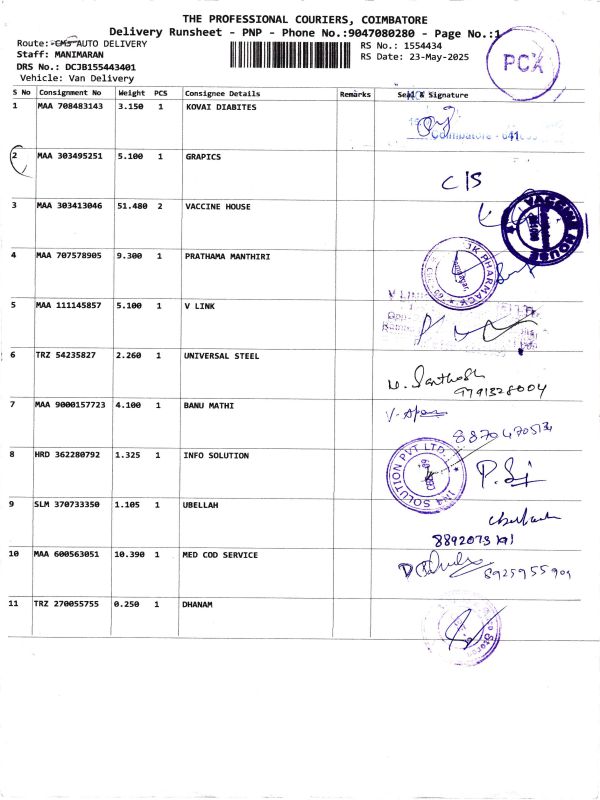 THE PROFESSIONAL COURIERS, COIMBATORE
Delivery Runsheet - PNP - Phone No.:9047080280 - Page No.:1
Route: CMS AUTO DELIVERY
RS No.: 1554434
Staff: MANIMARAN
RS Date: 23-May-2025
DRS No.: DCJB155443401
Vehicle: Van Delivery
PCX
S No Consignment No Weight PCS Consignee Details Remarks Seal & Signature
1 MAA 708483143 3.150 1 KOVAI DIABITES
Coimbatore - 641
2 MAA 303495251 5.100 1 GRAPICS
C/S
3 MAA 303413046 51.480 2 VACCINE HOUSE
VACCINE HOUSE
4 MAA 707578905 9.300 1 PRATHAMA MANTHIRI
JK PHARMACY
5 MAA 111145857 5.100 1 V LINK
V LINK
6 TRZ 54235827 2.260 1 UNIVERSAL STEEL
M. Santhosh
9791328004
7 MAA 9000157723 4.100 1 BANU MATHI
8 HRD 362280792 1.325 1 INFO SOLUTION
IN4 SOLUTION PVT LTD.
9 SLM 370733350 1.105 1 UBELLAH
10 MAA 600563051 10.390 1 MED COD SERVICE
8925955909
11 TRZ 270055755 0.250 1 DHANAM